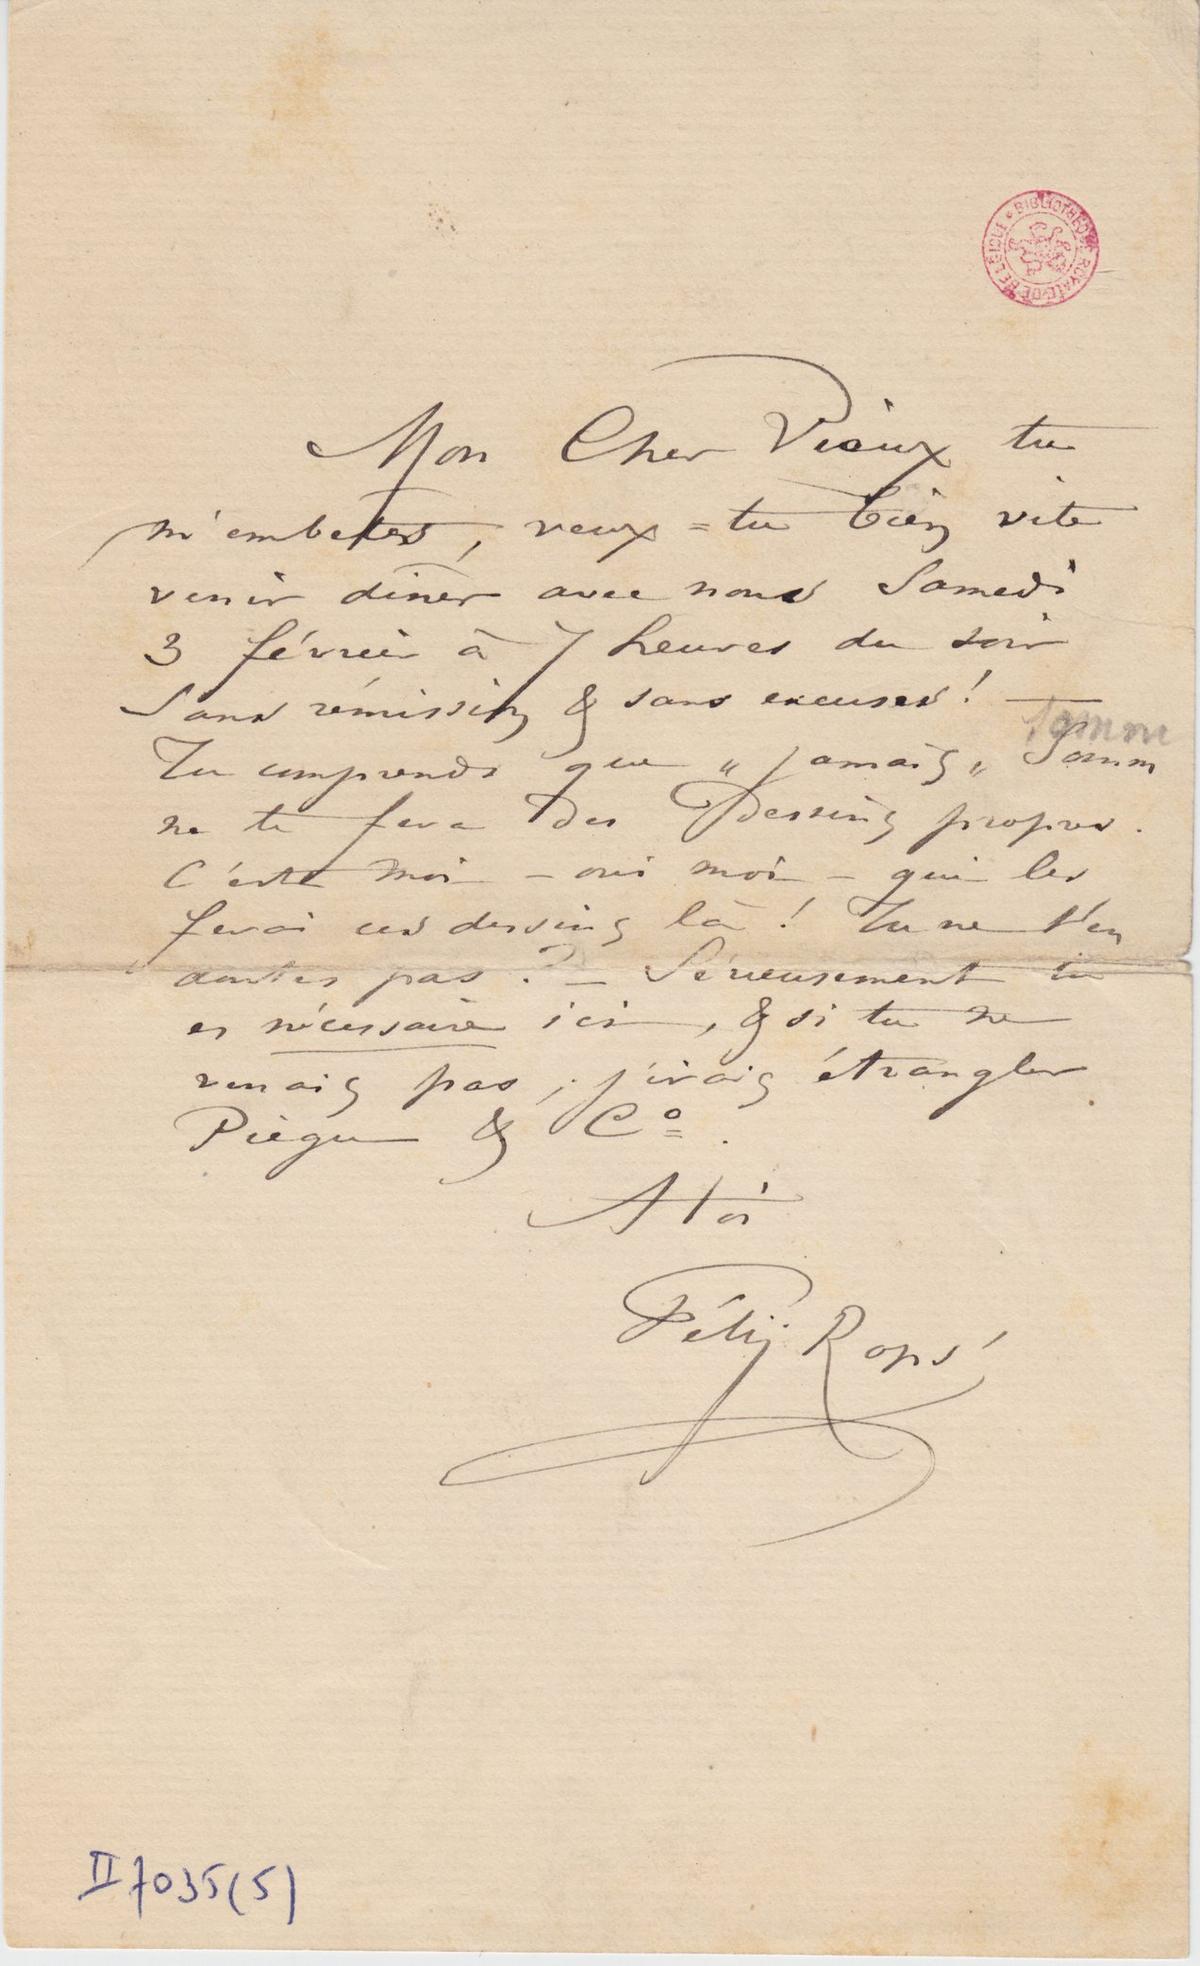 BIBLIOTHÈQUE ROYALE DE BELGIQUE
Mon Cher Vieux tu
m'embetes, veux-tu bien vite
venir dîner avec nous Samedi
3 février à 7 heures du soir
Sans rémission & sans excuses! —
Somm
Tu comprends que „ jamais „ Somm
ne te fera des Dessins propres.
C'este moi – oui moi – qui les
ferai ces dessins là! Tu ne t'en
doutes pas? – Sérieusement tu
es nécessaire ici, & si tu ne
venais pas, j'irais étrangler
Piégu & Co.
A toi
Félij Rops
II 7035(5)